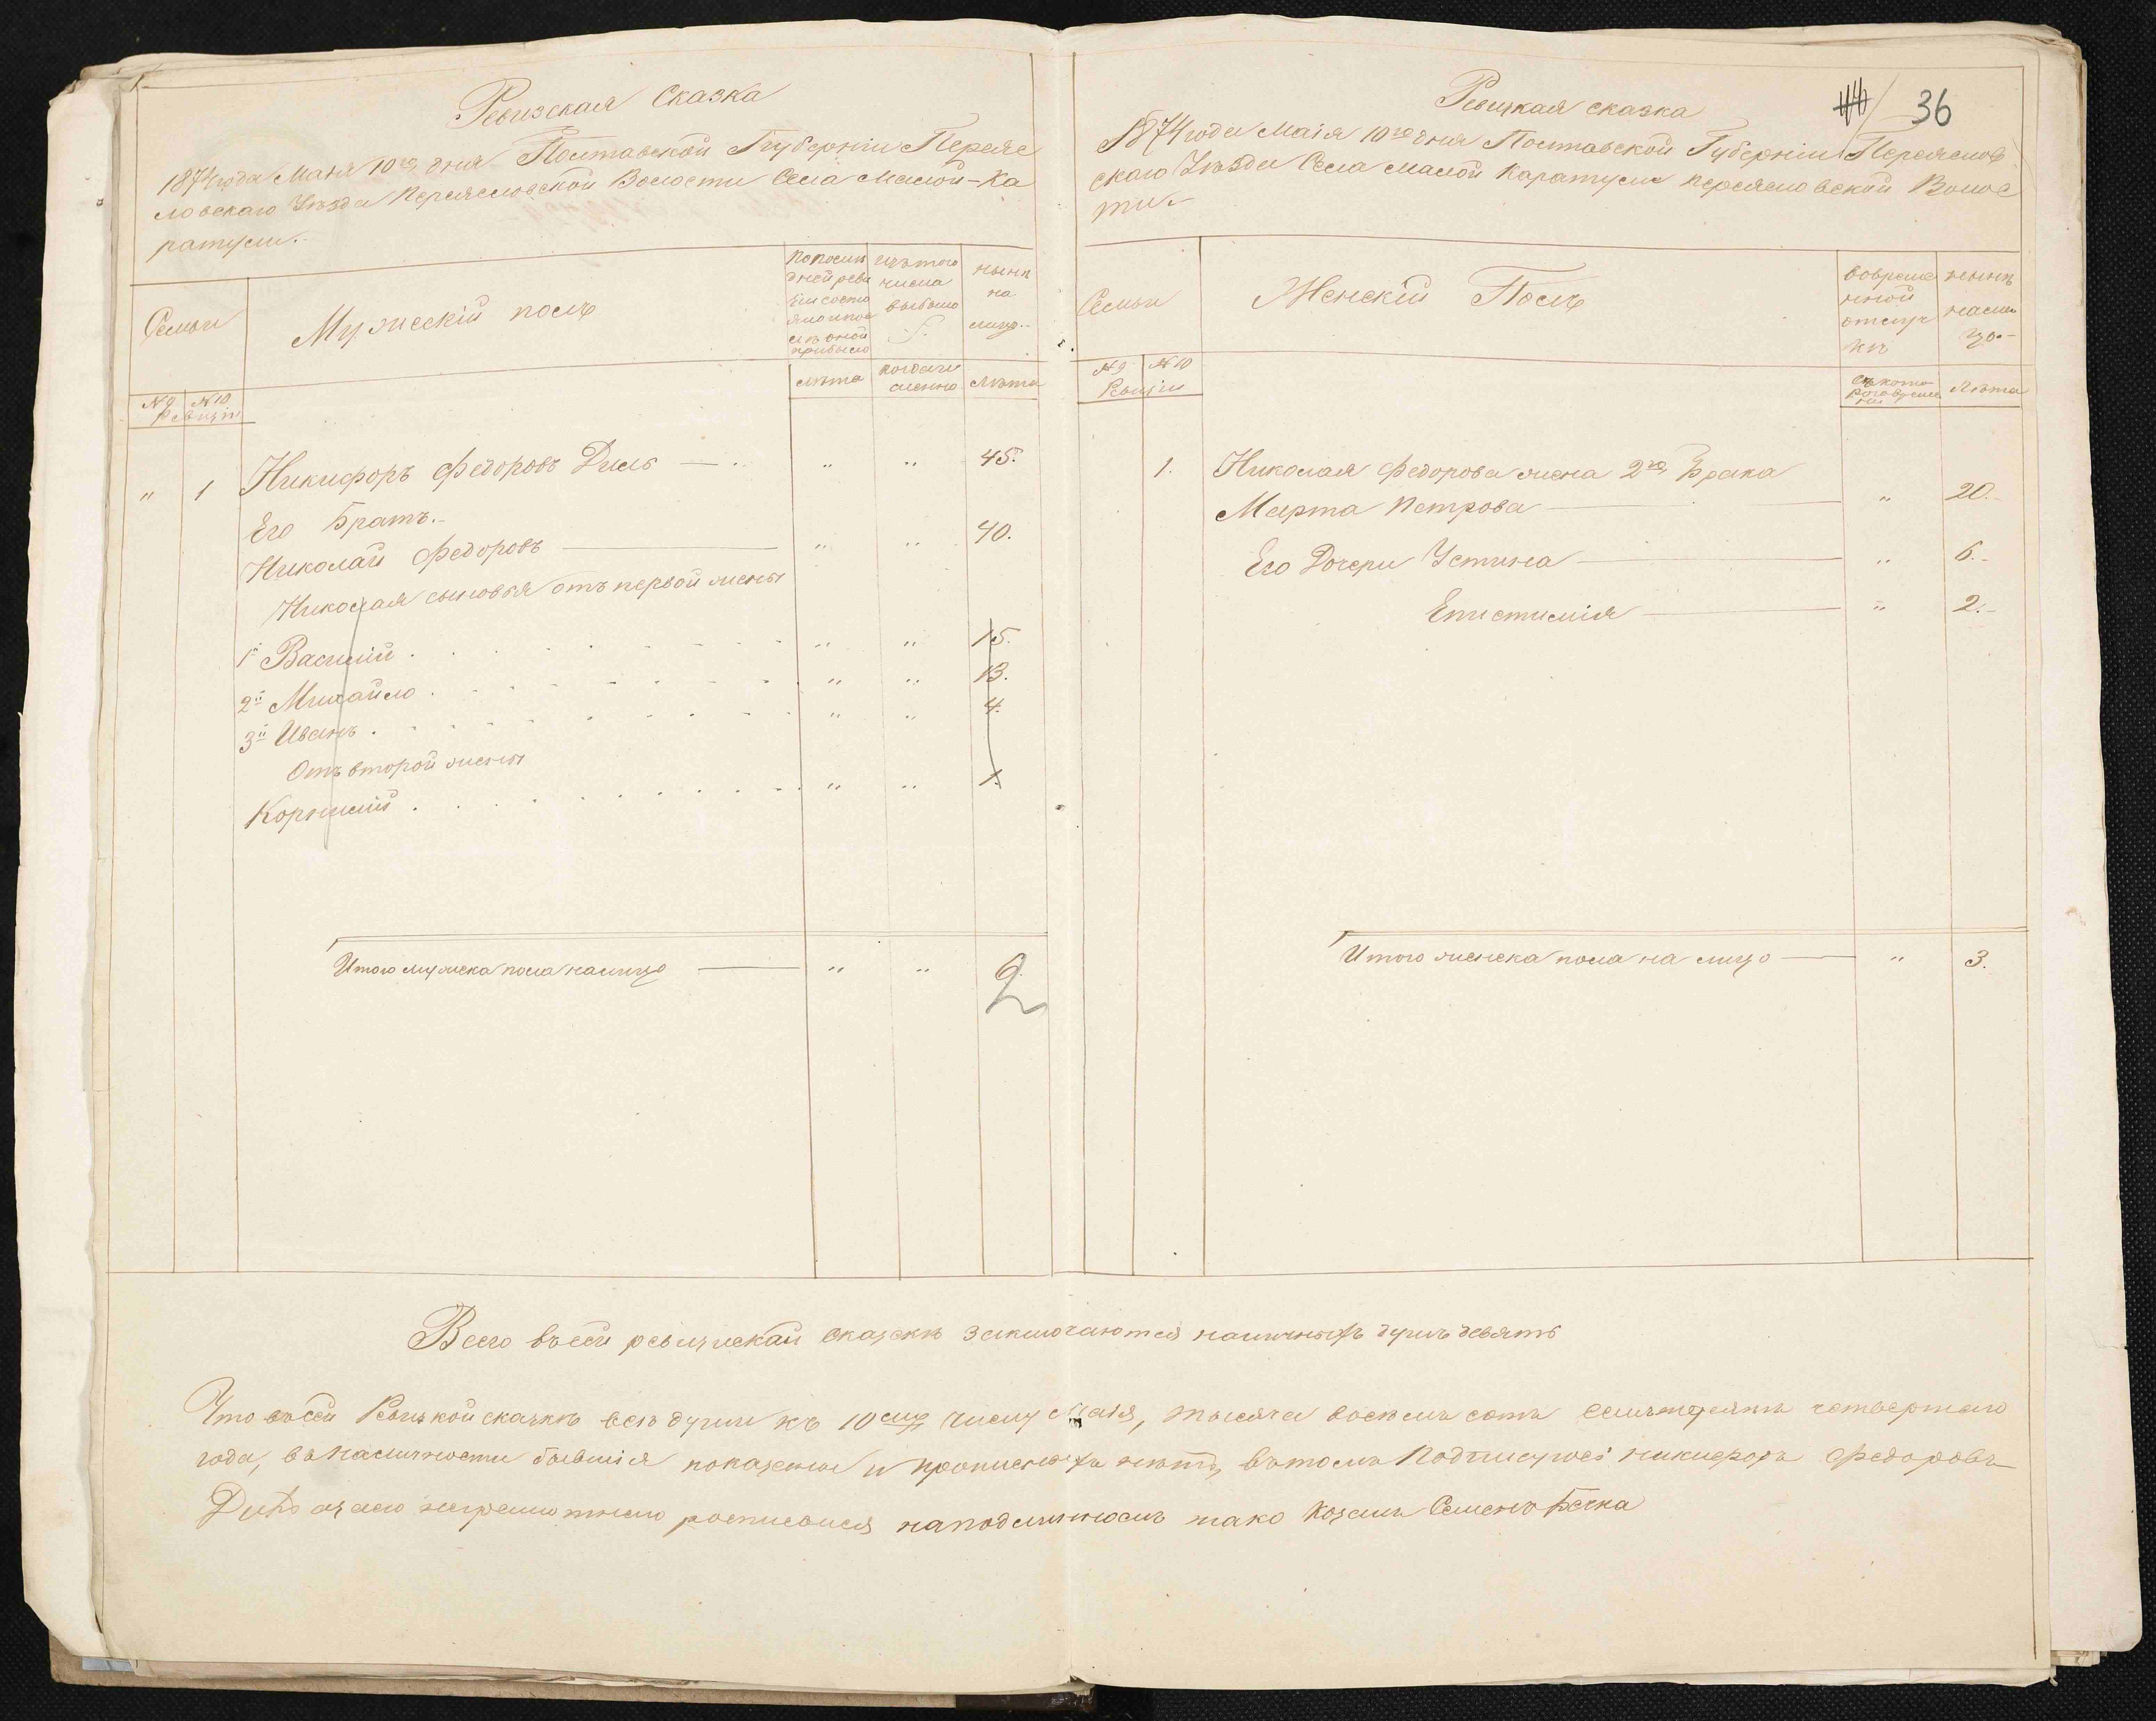 Ревизская Сказка
1874 года Маія 10го дня Полтавской Губерніи Переяс
ловскаго Уѣзда Переясловской Волости Села Малой-Ка
ратули.
Семьи
Мужескій полъ
по послѣ
дней реви
зіи состо
яло и пос
лѣ оной
прибыло
изъ того
числа
выбыло
нынѣ
на
лицо.
№ 9 № 10
Ревизіи
лѣта
когда и
менно
Лѣта
" 1 Никифоръ Федоровъ Диль — " " 45.
Его Братъ.
Николай Федоровъ — " " 40.
Николая сыновья отъ первой жены
1й Василій " " 15.
2й Михайло " " 13.
3й Иванъ " " 4.
Отъ второй жены
Корнилій " " 1.
Итого мужеска пола налицо — " " 2
Ревизкая сказка
36
1874 года Маія 10го дня Полтавской Губерніи Переяслов
скаго Уѣзда Села Малой Каратули Переясловской Волос
ти
Семьи
Женскій Полъ
вовреме
нной
отлуч
кѣ
нынѣ
нали
цо.
№ 9 № 10
Ревизіи
съ кото
раго времe
ни
Лѣта
1. Николая Федорова жена 2го Брака
Марта Петрова — " 20.
Его Дочери Устина — " 6.
Епистимія — " 2.
Итого женска пола на лицо — " 3.
Всего въ сей ревизской сказкѣ заключаются наличныхъ душъ девять
Что въ сей Ревизкой сказкѣ всѣ души къ 10му числу Маія, тысяча восемь сотъ семьдесятъ четвертаго
года, въ наличности бывшія показаны и прописныхъ нѣтъ, въ томъ Подписуюсь Никифоръ Федоровъ
Диль а за его неграмотнаго росписался на подлинномъ тако Козакъ Семенъ Бечка